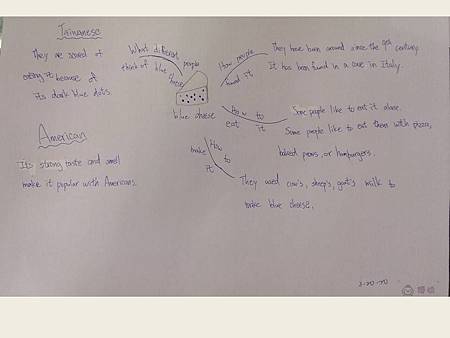 Taiwanese
They are scared of
eating it because of
its dark blue dots.
American
Its strong taste and smell
make it popular with Americans.
What different people
think of blue cheese
blue cheese
How people
found it
They have been around since the 9th century
It has been found in a cave in Italy.
How to
eat it
Some people like to eat it alone.
Some people like to eat them with pizza,
baked pears, or hamburgers.
How to
make it
They used cow's, sheep's, goat's milk to
make blue cheese.
3-20-20